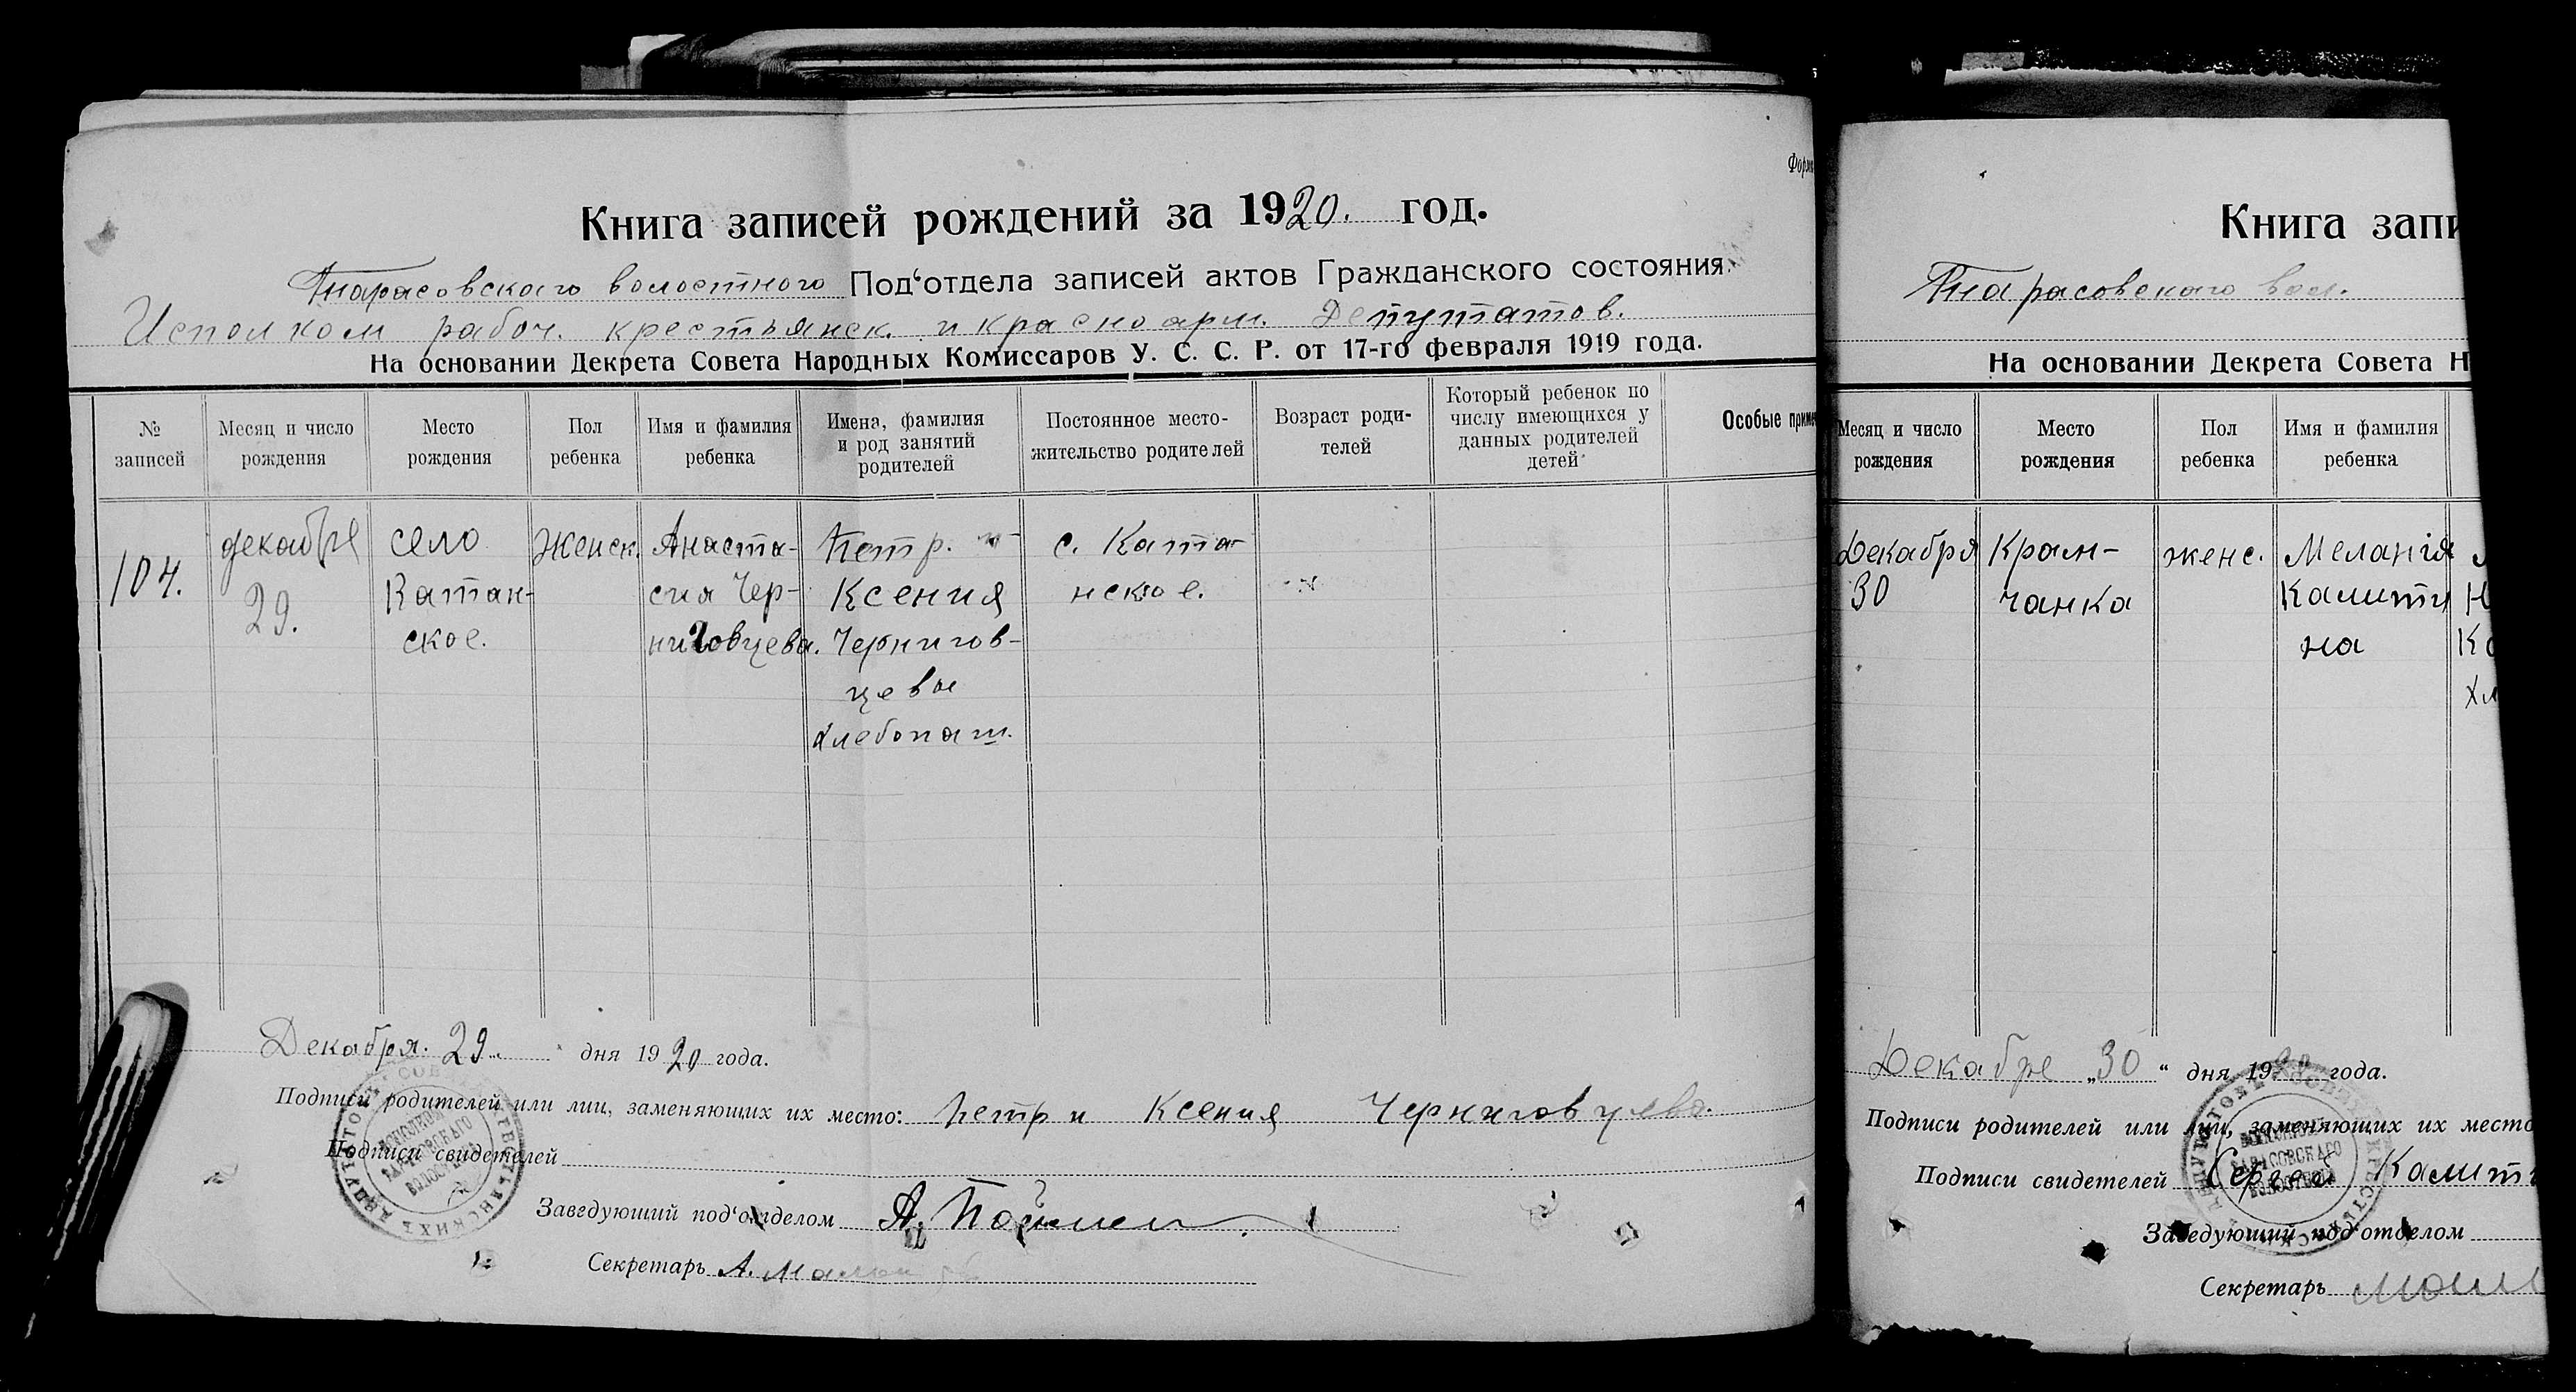 Форм
Книга записей рождений за 1920. год.
Тарасовского волостного Под‘отдела записей актов Гражданского состояния.
Исполком рабоч. крестьянск. и красноарм. Депутатов.
На основании Декрета Совета Народных Комиссаров У. С. С. Р. от 17-го февраля 1919 года.
№ записей
Месяц и число рождения
Место рождения
Пол ребенка
Имя и фамилия ребенка
Имена, фамилия и род занятий родителей
Постоянное место-жительство родителей
Возраст роди-телей
Который ребенок по числу имеющихся у данных родителей детей
Особые приме
104.
декабря
29.
село
Катан-
ское.
Женск.
Анаста-
сия Чер-
ниговцева.
Петр. и
Ксения
Чернигов-
цевы
хлебопаш.
с. Ката-
нское.
Декабря. 29. дня 1920 года.
Подписи родителей или лиц, заменяющих их место: Петр и Ксения Черниговцева.
Подписи свидетелей
Заведующий под‘отделом А.
Секретарь А.
Книга запи
Тарасовского вол.
На основании Декрета Совета Н
Месяц и число рождения
Место рождения
Пол ребенка
Имя и фамилия ребенка
Декабря
30
Крам-
чанка
женс.
Меланія
Калити
на
Н
Ка
Хл
Декабре „30“ дня 1920 года.
Подписи родителей или лиц, заменяющих их место
Подписи свидетелей Сергей Калити
Заведующий под‘отделом
Секретарь